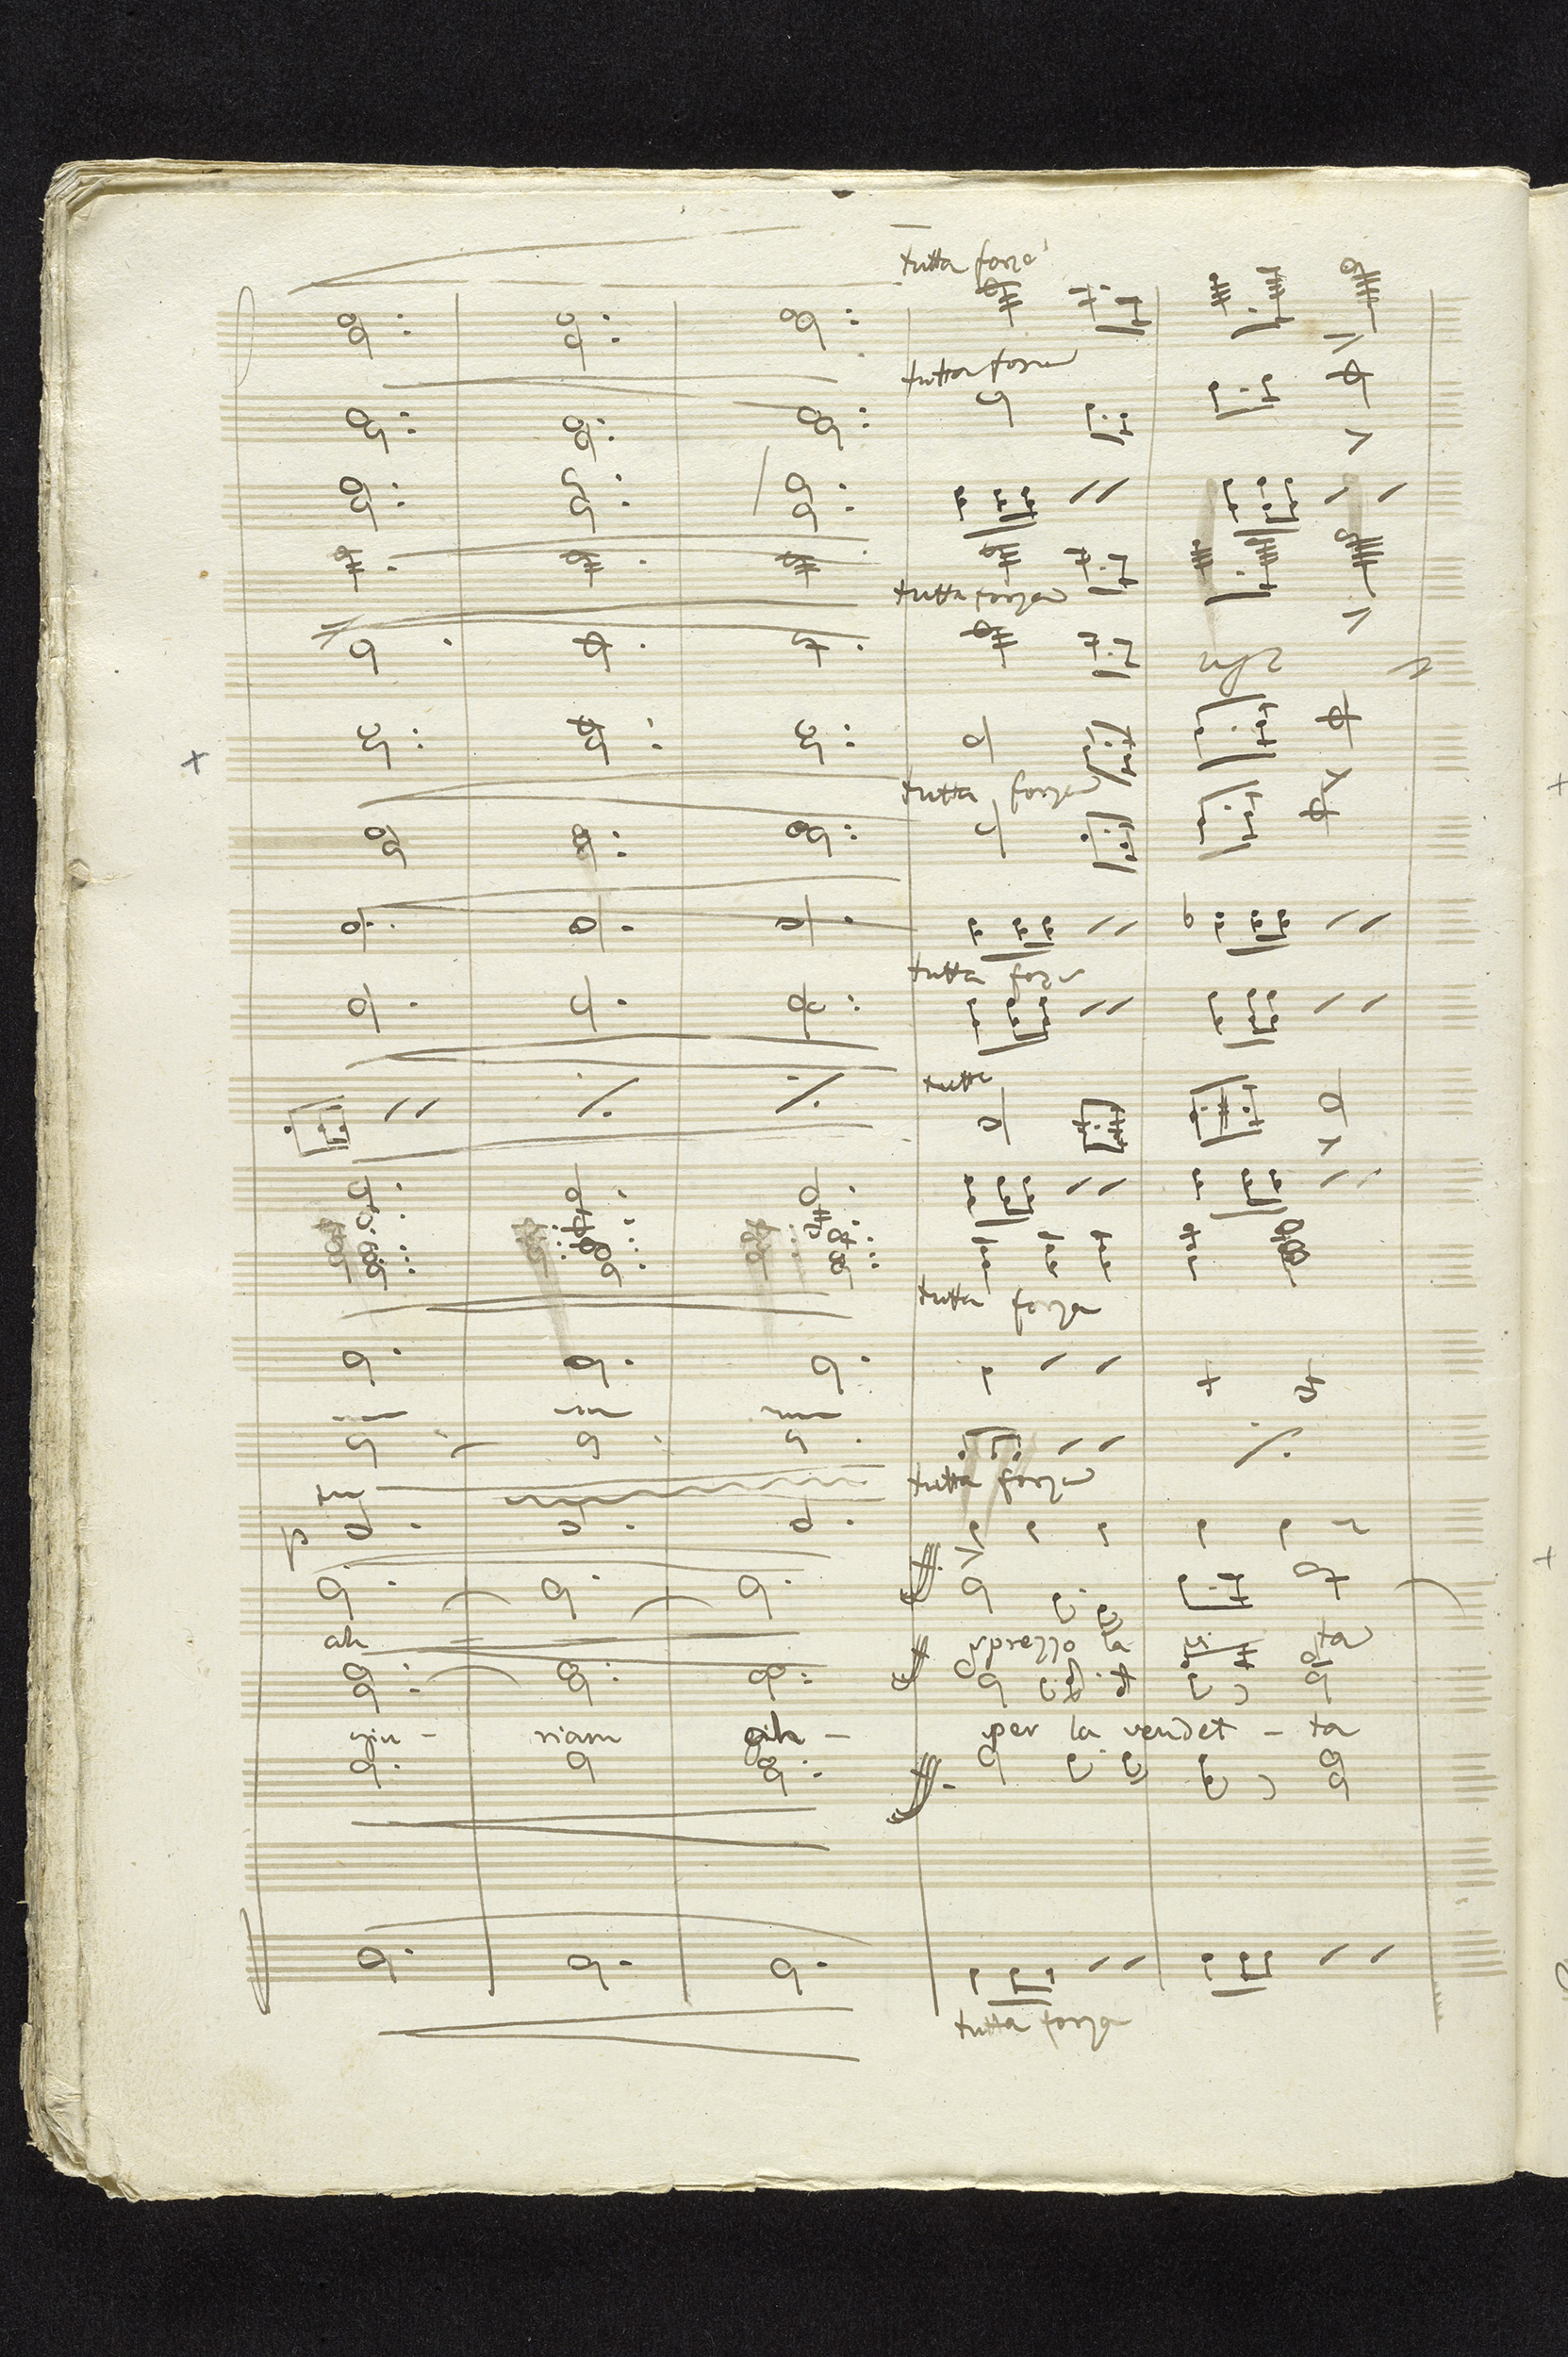 tutta forza
tutta forza
tutta forza
tutta forza
tutta forza
tutta
tutta forza
tutta forza
p
ah sprezzo la vi ta
giu - riam ah - per la vendet - ta
tutta forza